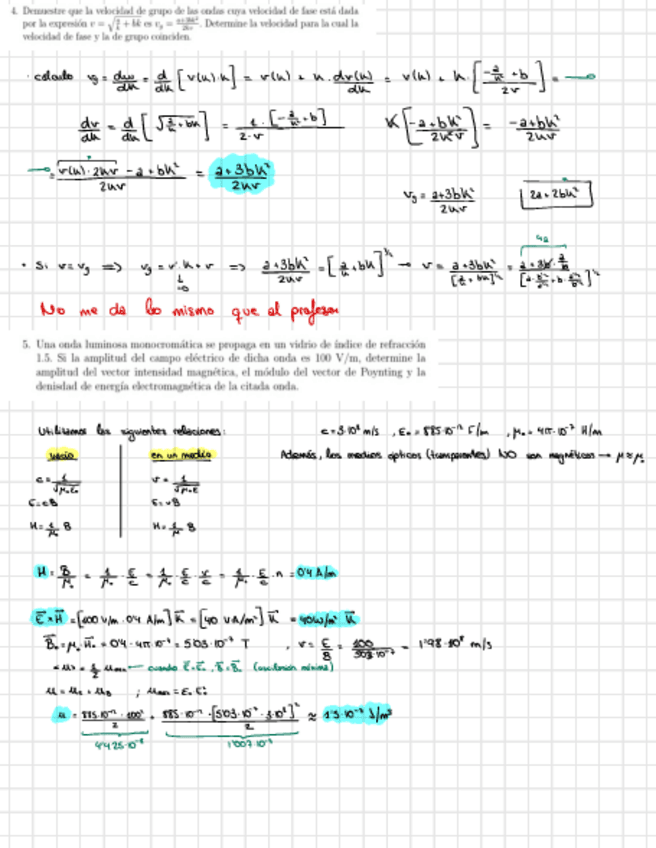 4. Demuestre que la velocidad de grupo de las ondas cuya velocidad de fase está dada
por la expresión v = √(a/k + bk) es v_g = (a+3bk²)/(2kv). Determine la velocidad para la cual la
velocidad de fase y la de grupo coinciden.
· calculo v_g = dw/dk = d/dk [v(k)·k] = v(k) + k·dv(k)/dk = v(k) + k·[(-a/k² + b)/(2v)] =
dv/dk = d/dk [√(a/k + bk)] = 1·[-a/k² + b]/(2·v) K[(-a+bk²)/(2k²v)] = (-a+bk²)/(2kv)
= (v(k)·2kv - a + bk²)/(2kv) = (a+3bk²)/(2kv)
v_g = (a+3bk²)/(2kv) 2a + 2bk²
· Si v = v_g ⟹ v_g = v'·k + v ⟹ (a+3bk²)/(2kv) = [a/k + bk]^½ → v =
No me da lo mismo que al profesor
5. Una onda luminosa monocromática se propaga en un vidrio de índice de refracción
1.5. Si la amplitud del campo eléctrico de dicha onda es 100 V/m, determine la
amplitud del vector intensidad magnética, el módulo del vector de Poynting y la
denisdad de energía electromagnética de la citada onda.
Utilizamos las siguientes relaciones: c = 3·10⁸ m/s , ε₀ = 8'85·10⁻¹² F/m , μ₀ = 4π·10⁻⁷ H/m
vacío en un medio Además, los medios ópticos (transparentes) NO son magnéticos → μ ≈ μ₀
c = 1/√(μ₀ε₀) v = 1/√(μ₀ε)
E = cB E = vB
H = 1/μ₀ B H = 1/μ B
H = B/μ₀ = 1/μ₀ · E/v = 1/μ₀ · E/v · c/c = 1/μ₀ · E/c · n = 0'4 A/m
E×H = [100 V/m · 0'4 A/m] k = [40 VA/m²] k = 40 W/m² k
B₀ = μ₀·H₀ = 0'4 · 4π·10⁻⁷ = 5'03·10⁻⁷ T , v = E/B = 100/(5'03·10⁻⁷) = 1'98·10⁸ m/s
<u> = 1/2 u_max ← cuando E = E₀ , B = B₀
u = u_E + u_B ; u_max = ε₀ E₀²
u = (8'85·10⁻¹² · 100²)/2 + (8'85·10⁻¹² · [5'03·10⁻⁷ · 3·10⁸]²)/2 ≈ 1'5·10⁻⁷ J/m³
4'425·10⁻⁸ 1'007·10⁻⁷